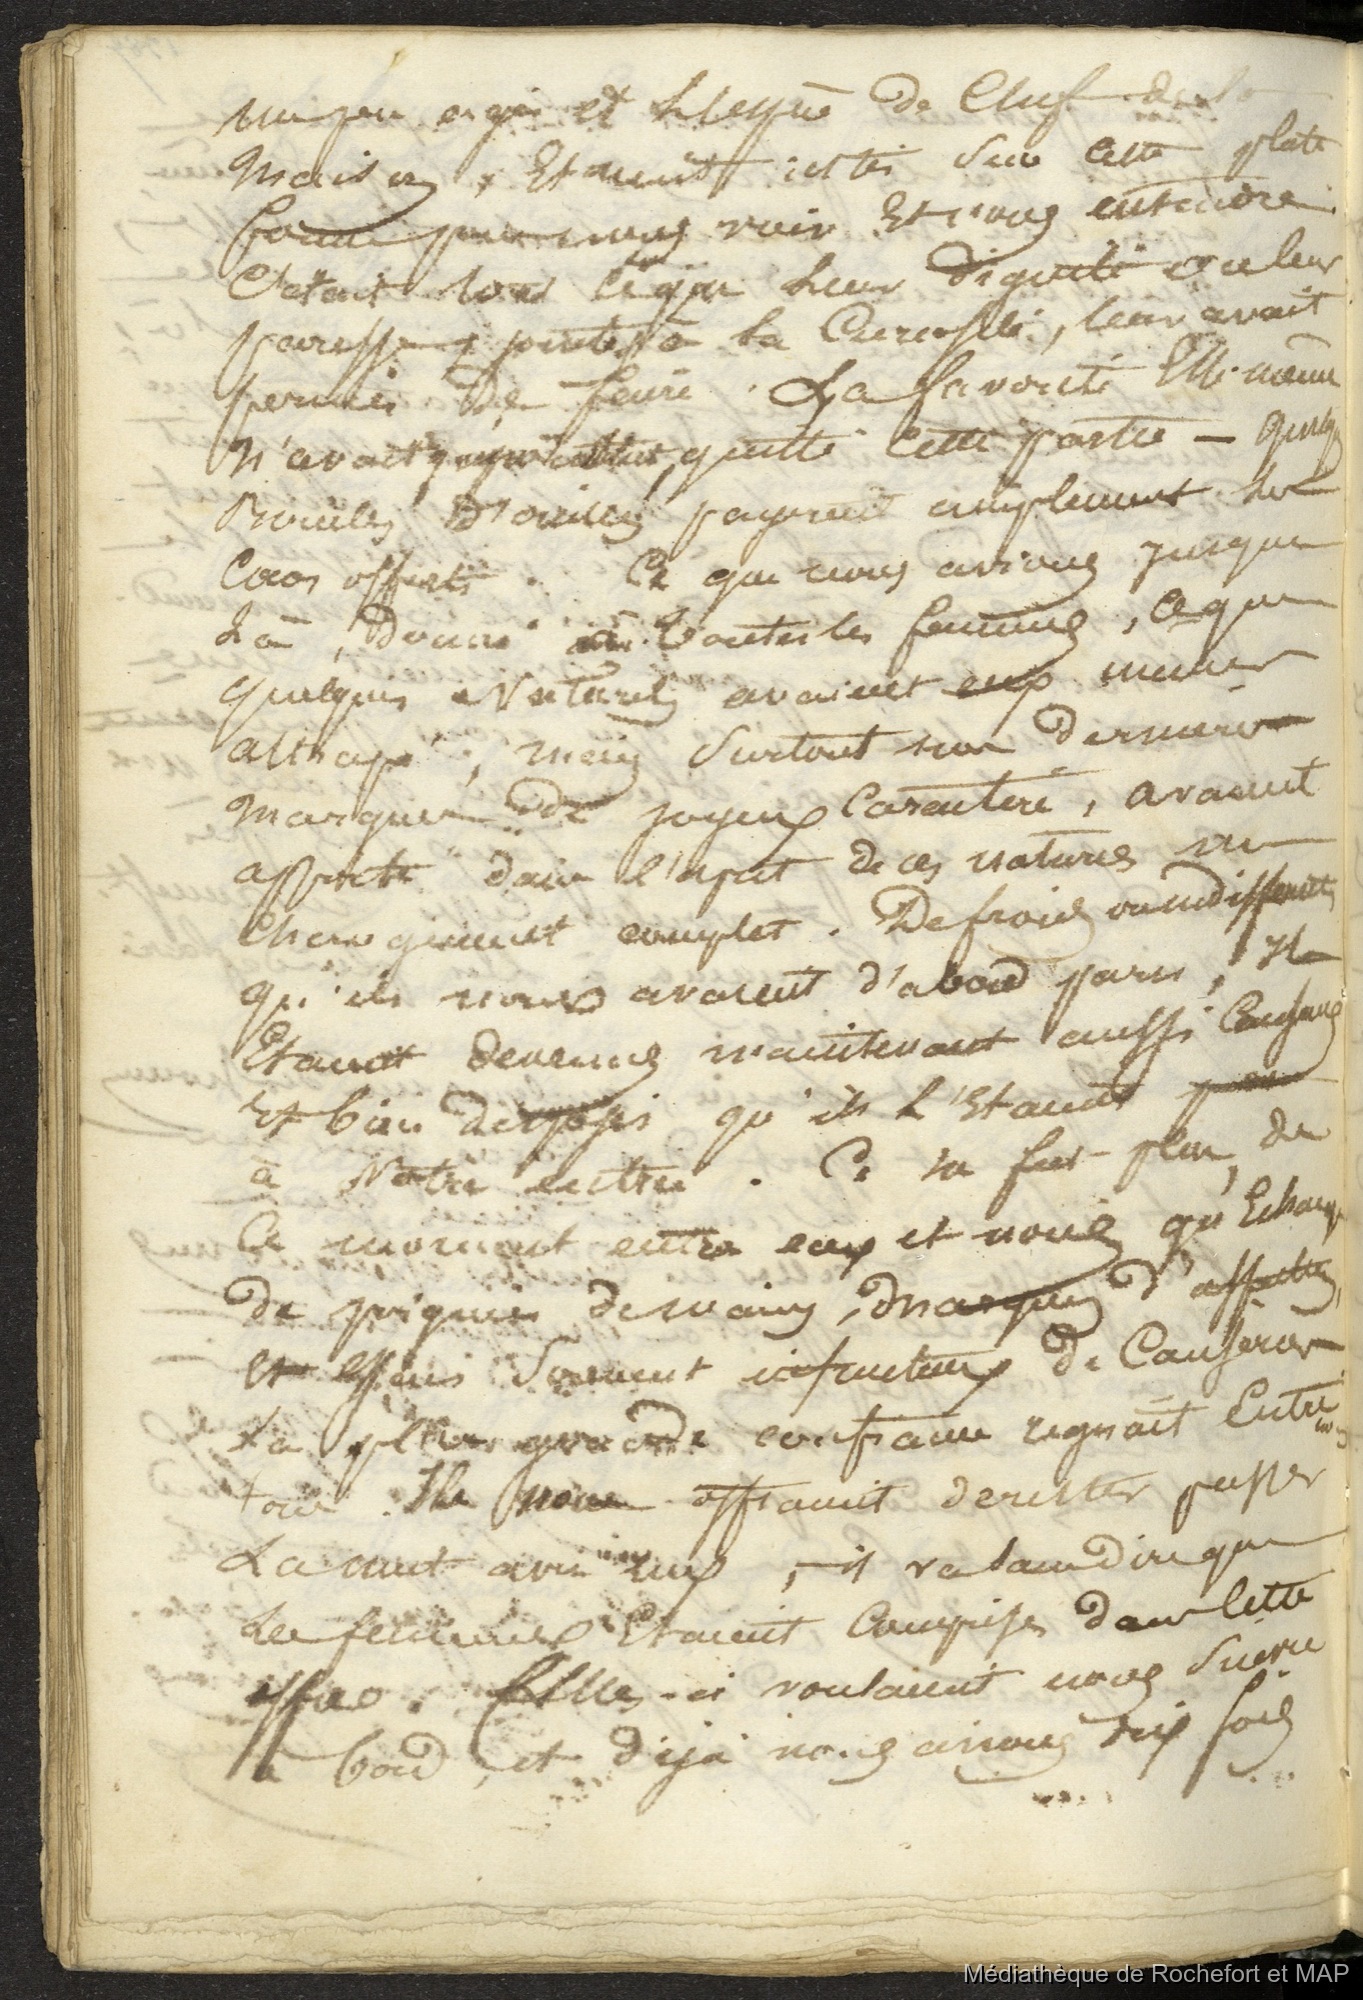 un peu âgé et l'espèce de Chef de la
maison, Etaient restés sur cette plate
forme pour nous voir Et nous entendre.
C'était tout ce que leur dignité ou leur
paresse, jointes à la Curiosité, leur avait
permis de faire. La favorite Elle-même
n'avait quitté cette partie – quelques
boucles d'oreilles payerent amplement les
Cocos offerts. Ce que nous avions jusque
là, donné à toutes les femmes, ce que
quelques Naturels avaient eux mêmes
attrapé, mais surtout nos dernières
marques de joyeux Caractère, avaient
apporté dans l'esprit de ces natures un
changement complet. De froids ou indifférents
qu'ils nous avaient d'abord paru, Ils
Etaient devenus maintenant aussi Causeurs
Et bien disposés qu'ils l'Etaient peu
à Notre entrée. Ce ne fut plus, de
Ce moment entre eux et nous qu'Echange
de poignées de mains, marques d'affection,
et essais souvent infructueux de Causerie
La plus grande confiance régnait Entre
tous. Ils nous offraient de rester passer
La nuit avec eux, il va sans dire que
Les femmes Etaient Comprises dans Cette
offre. Elles-ci voulaient nous suivre
à bord, et déjà nous avions dix fois
Médiathèque de Rochefort et MAP